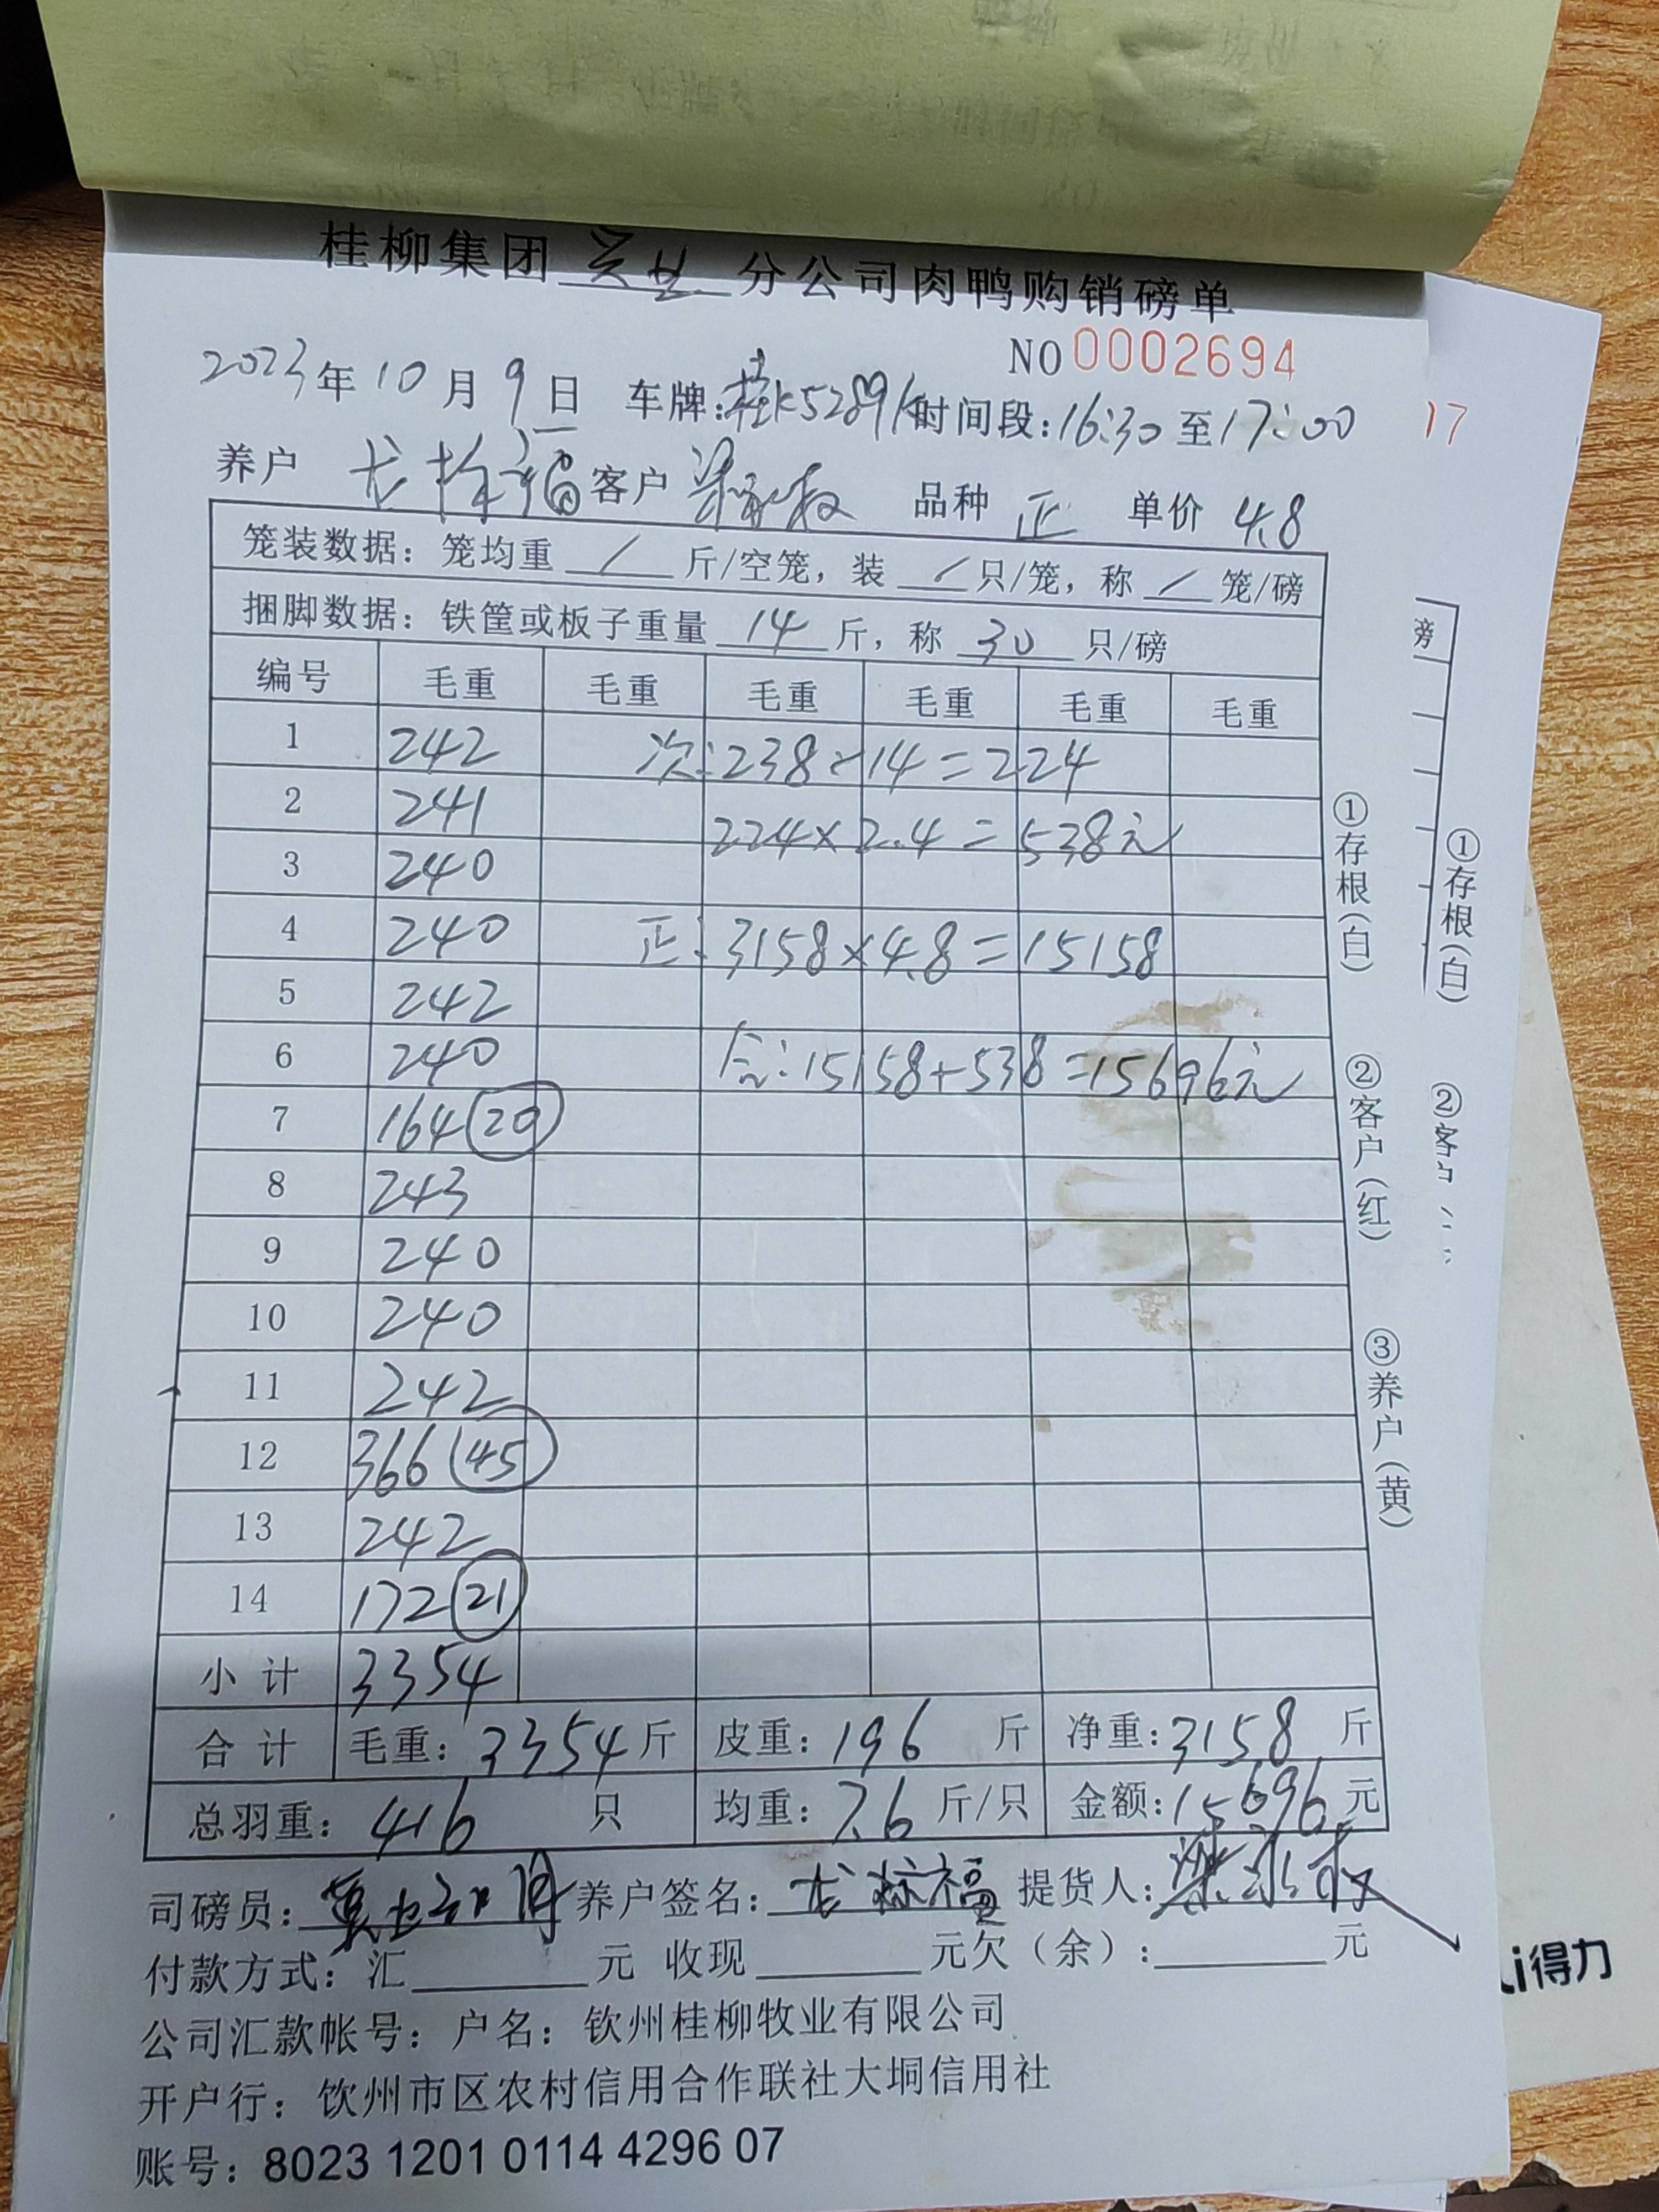 桂柳集团 灵山 分公司肉鸭购销磅单
NO 0002694
2023年 10月 9日 车牌:桂K5289 时间段:16:30至17:00
17
养户 龙标福 客户 梁永权 品种 正 单价 4.8
笼装数据：笼均重 / 斤/空笼，装 / 只/笼，称 / 笼/磅
捆脚数据：铁筐或板子重量 14 斤，称 30 只/磅
磅
编号 毛重 毛重 毛重 毛重 毛重 毛重
1 242 次:238-14=224
2 241 224×2.4=538元
3 240
4 240 正:3158×4.8=15158
5 242
6 240 合:15158+538=15696元
7 164 20
8 243
9 240
10 240
11 242
12 366 45
13 242
14 172 21
小计 3354
合计 毛重：3354斤 皮重：196 斤 净重：3158 斤
总羽重：416 只 均重：7.6 斤/只 金额：15696 元
①存根(白) ②客户(红) ③养户(黄)
①存根(白) ②客
司磅员： 养户签名：龙标福 提货人：梁永权
付款方式：汇 元 收现 元欠（余）： 元
公司汇款帐号：户名：钦州桂柳牧业有限公司
开户行：钦州市区农村信用合作联社大垌信用社
账号：8023 1201 0114 4296 07
li得力